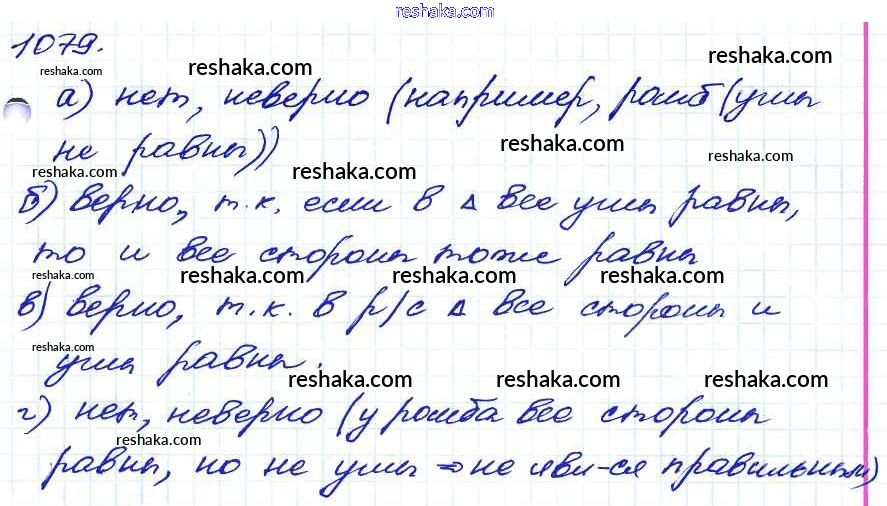 reshaka.com
1079.
reshaka.com reshaka.com reshaka.com
а) нет, неверно (например, ромб (углы
reshaka.com
не равны))
reshaka.com reshaka.com reshaka.com
б) верно, т.к. если в △ все углы равны,
то и все стороны тоже равны
reshaka.com reshaka.com reshaka.com
в) верно, т.к. в р/с △ все стороны и
reshaka.com
углы равны.
reshaka.com reshaka.com reshaka.com
г) нет, неверно (у ромба все стороны
reshaka.com reshaka.com reshaka.com
равны, но не углы ⇒ не явл-ся правильным)